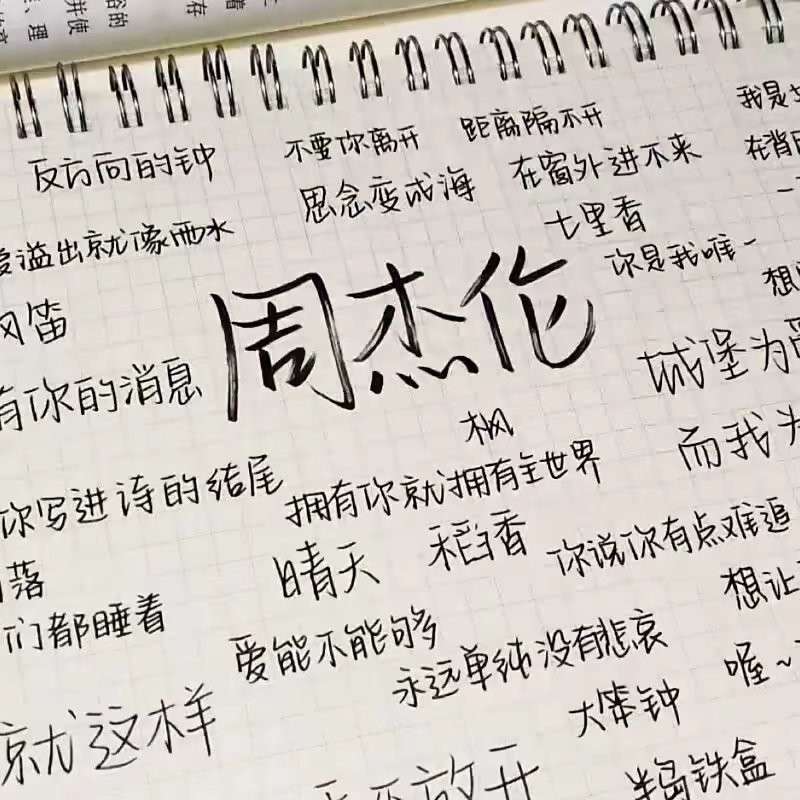 反方向的钟
不要你离开
距离隔不开
我是
思念变成海
在窗外进不来
七里香
溢出就像雨水
你是我唯一
周杰伦
笛
有你的消息
城堡为
枫
而我
你写进诗的结尾
拥有你就拥有全世界
落
晴天
稻香
你说你有点难追
想让
们都睡着
爱能不能够
永远单纯没有悲哀
喔~
就这样
大笨钟
放开
半岛铁盒